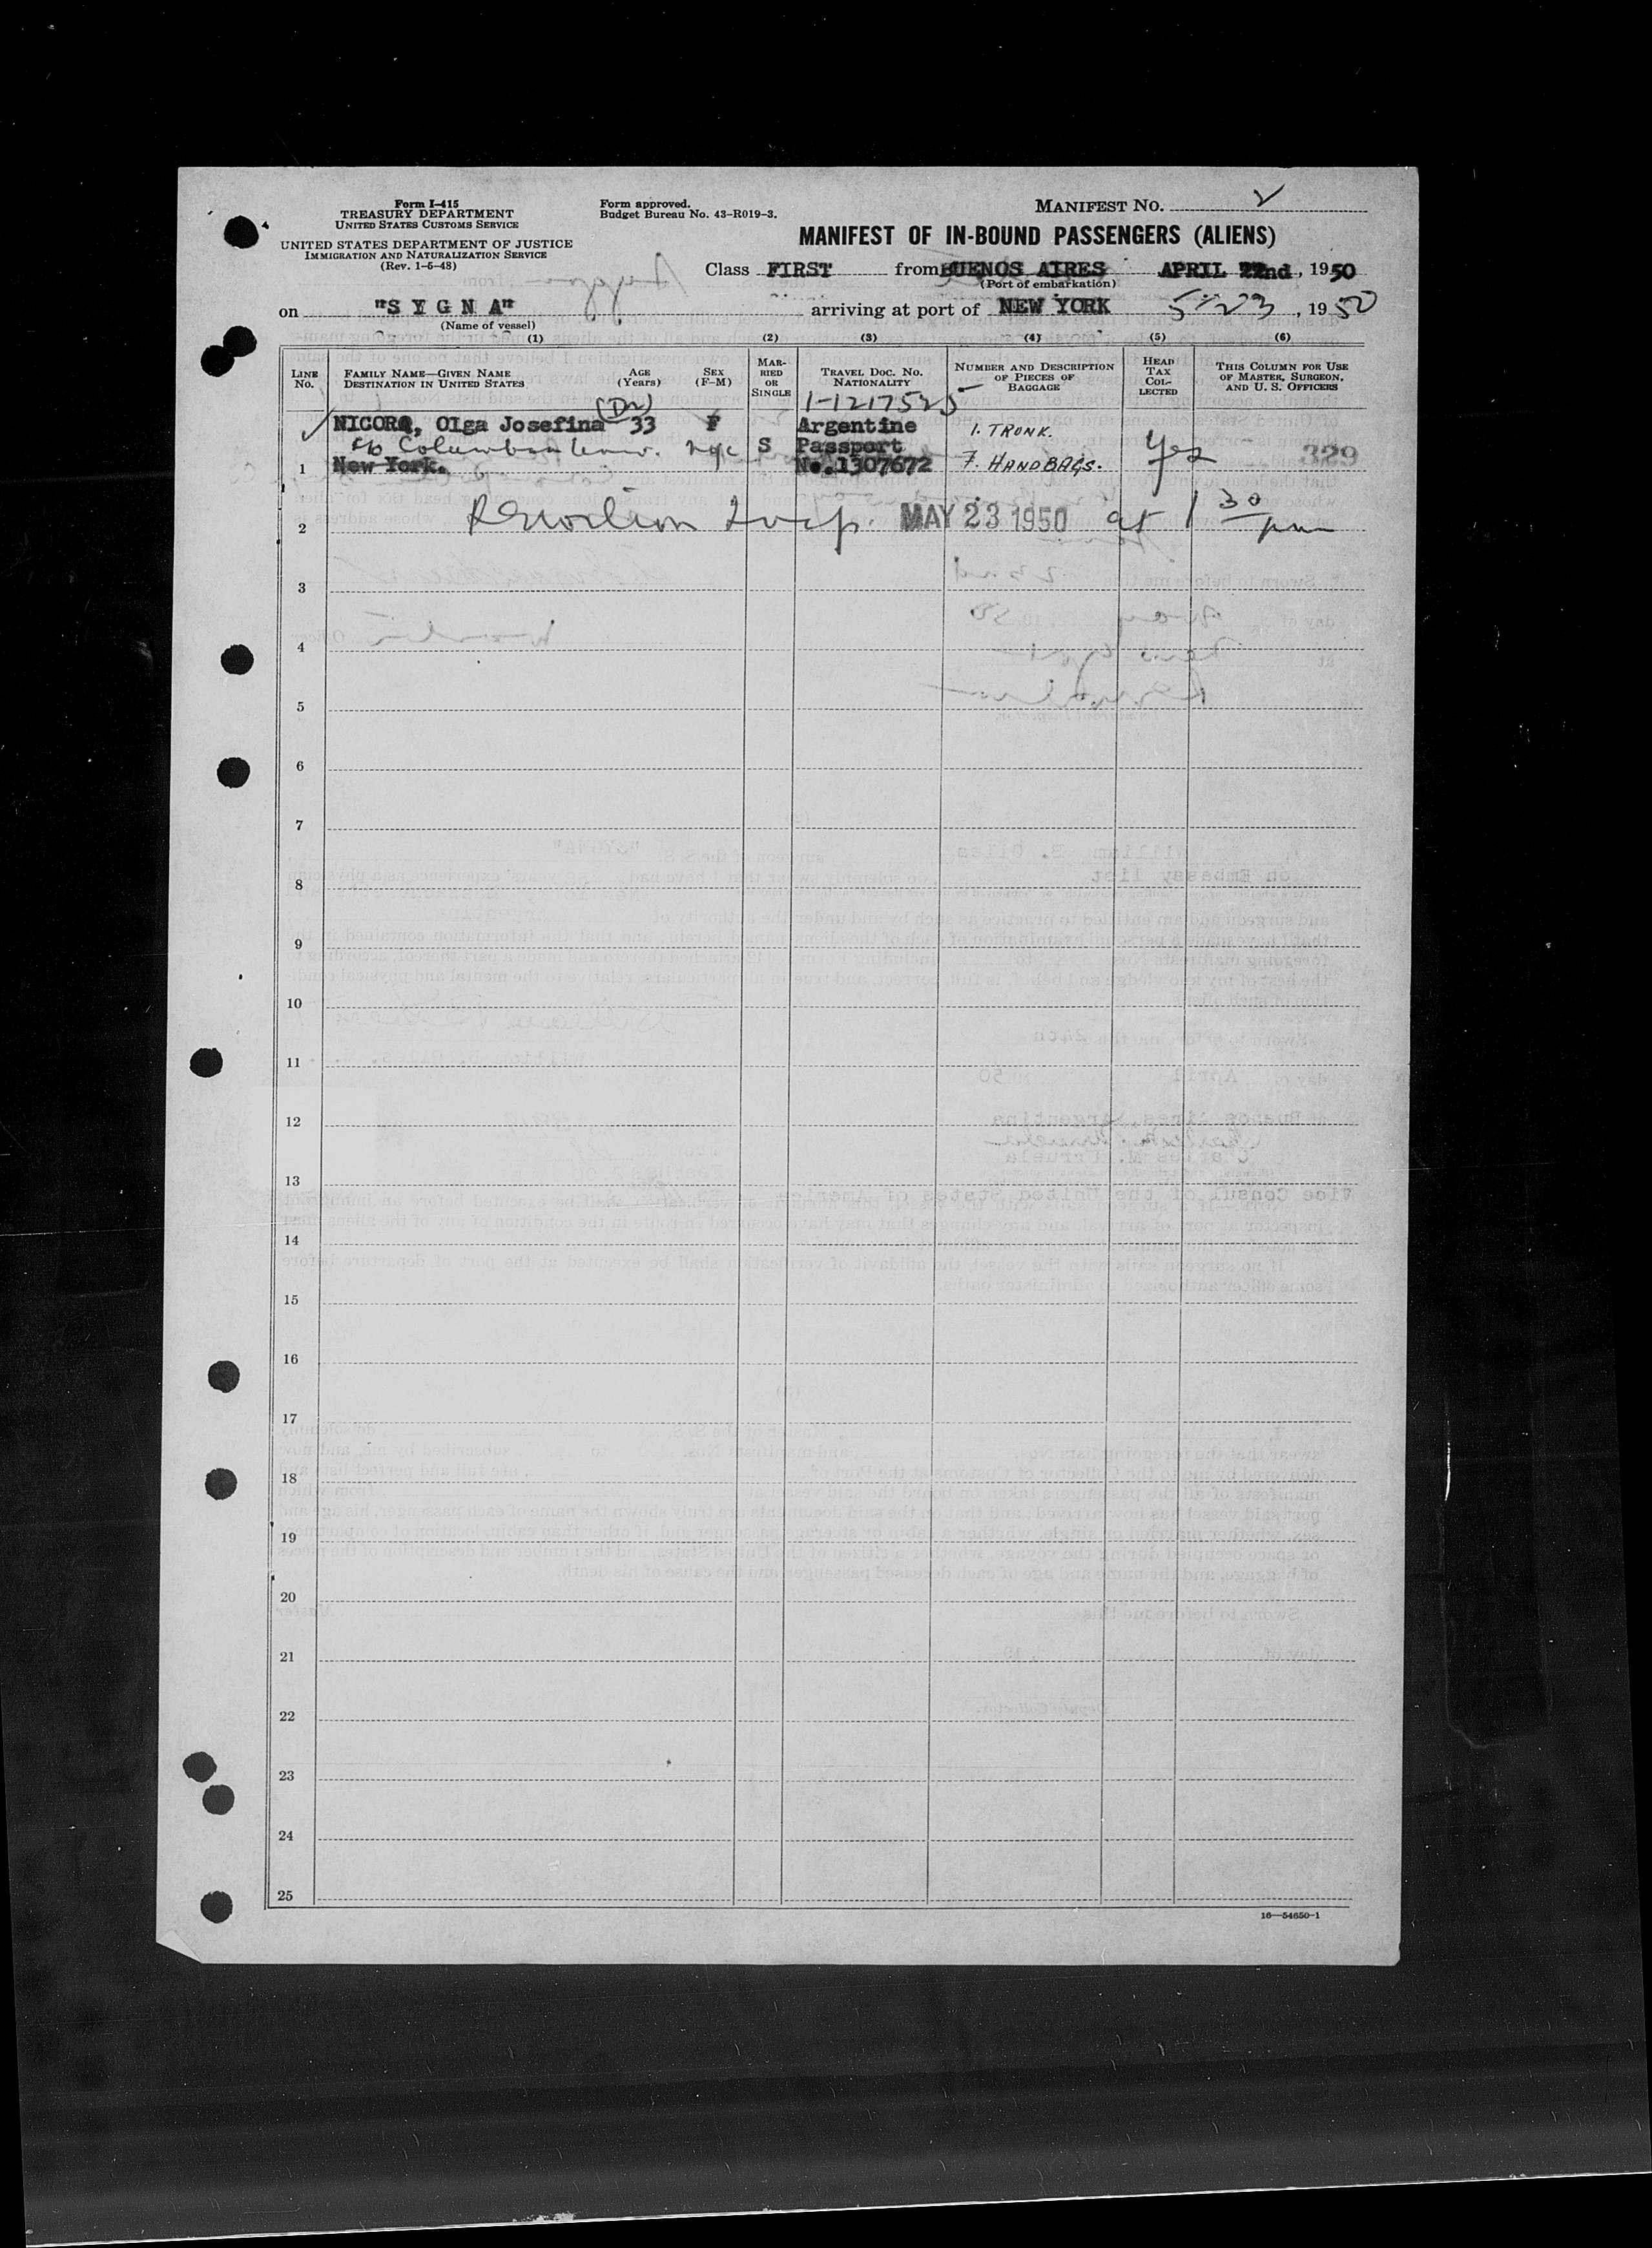 Form I-415
TREASURY DEPARTMENT
UNITED STATES CUSTOMS SERVICE
UNITED STATES DEPARTMENT OF JUSTICE
IMMIGRATION AND NATURALIZATION SERVICE
(Rev. 1-6-48)
Form approved.
Budget Bureau No. 43-R019-3.
MANIFEST NO.
MANIFEST OF IN-BOUND PASSENGERS (ALIENS)
Class FIRST from BUENOS AIRES APRIL 22nd, 1950
(Port of embarkation)
on "S Y G N A" arriving at port of NEW YORK 5-23, 1950
(Name of vessel)
(1) (2) (3) (4) (5) (6)
LINE No.
FAMILY NAME—GIVEN NAME
DESTINATION IN UNITED STATES
AGE (Years)
SEX (F-M)
MARRIED OR SINGLE
TRAVEL DOC. NO.
NATIONALITY
NUMBER AND DESCRIPTION OF PIECES OF BAGGAGE
HEAD TAX COLLECTED
THIS COLUMN FOR USE OF MASTER, SURGEON, AND U. S. OFFICERS
1-1217525
(Dr)
NICORA, Olga Josefina 33 F Argentine 1. TRUNK.
c/o Columbia Univ. NYC S Passport Yes 329
1 New York. No.1307672 7. HANDBAGS.
2 MAY 23 1950 at 1 30 pm
3
4
5
6
7
8
9
10
11
12
13
14
15
16
17
18
19
20
21
22
23
24
25
16—54650-1